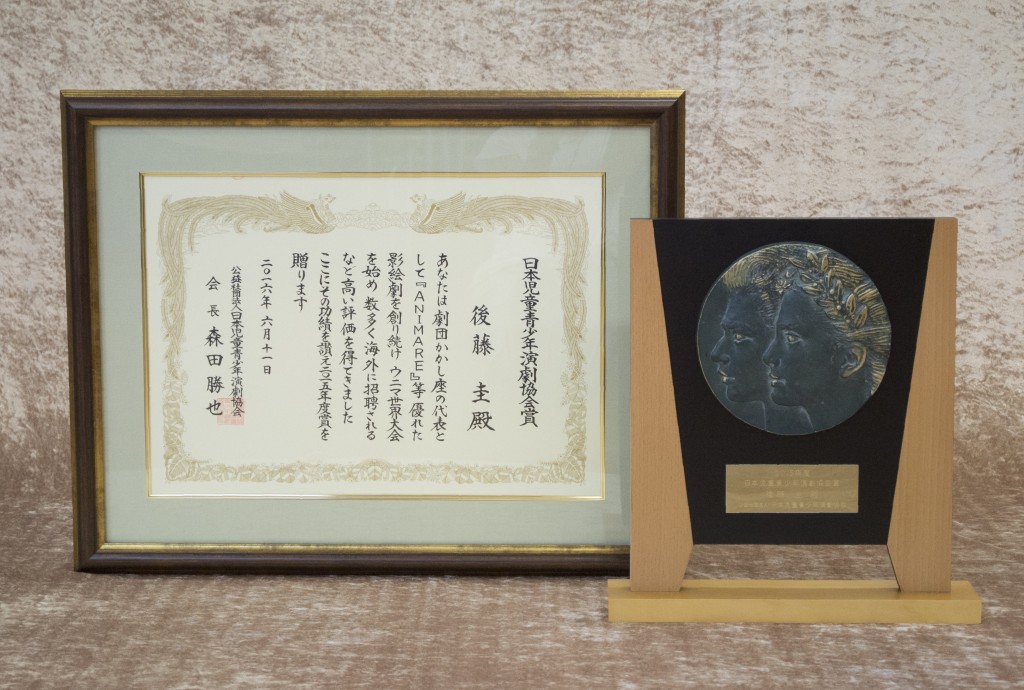 日本児童青少年演劇協会賞
後藤 圭殿
あなたは劇団かかし座の代表と
して『ANIMARE』等優れた
影絵劇を創り続け ウニマ世界大会
を始め 数多く海外に招聘される
など高い評価を得てきました
ここにその功績を讃え二〇一五年度賞を
贈ります
二〇一六年 六月十一日
公益社団法人日本児童青少年演劇協会
会長 森田勝也